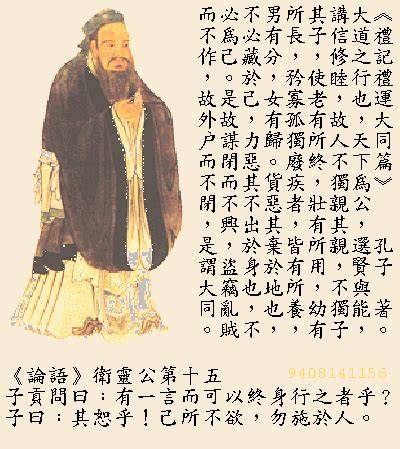 《禮記禮運大同篇》 孔子 著。
大道之行也，天下為公，選賢與能，
講信修睦，故人不獨親其親，不獨子
其子，使老有所終，壯有所用，幼有
所長，矜寡孤獨廢疾者，皆有所養，
男有分，女有歸。貨惡其棄於地也，
不必藏於己，力惡其不出於身也，不
必為己。是故謀閉而不興，盜竊亂賊
而不作，故外户而不閉，是謂大同。
《論語》衛靈公第十五
9408141156
子貢問曰：有一言而可以終身行之者乎？
子曰：其恕乎！己所不欲，勿施於人。